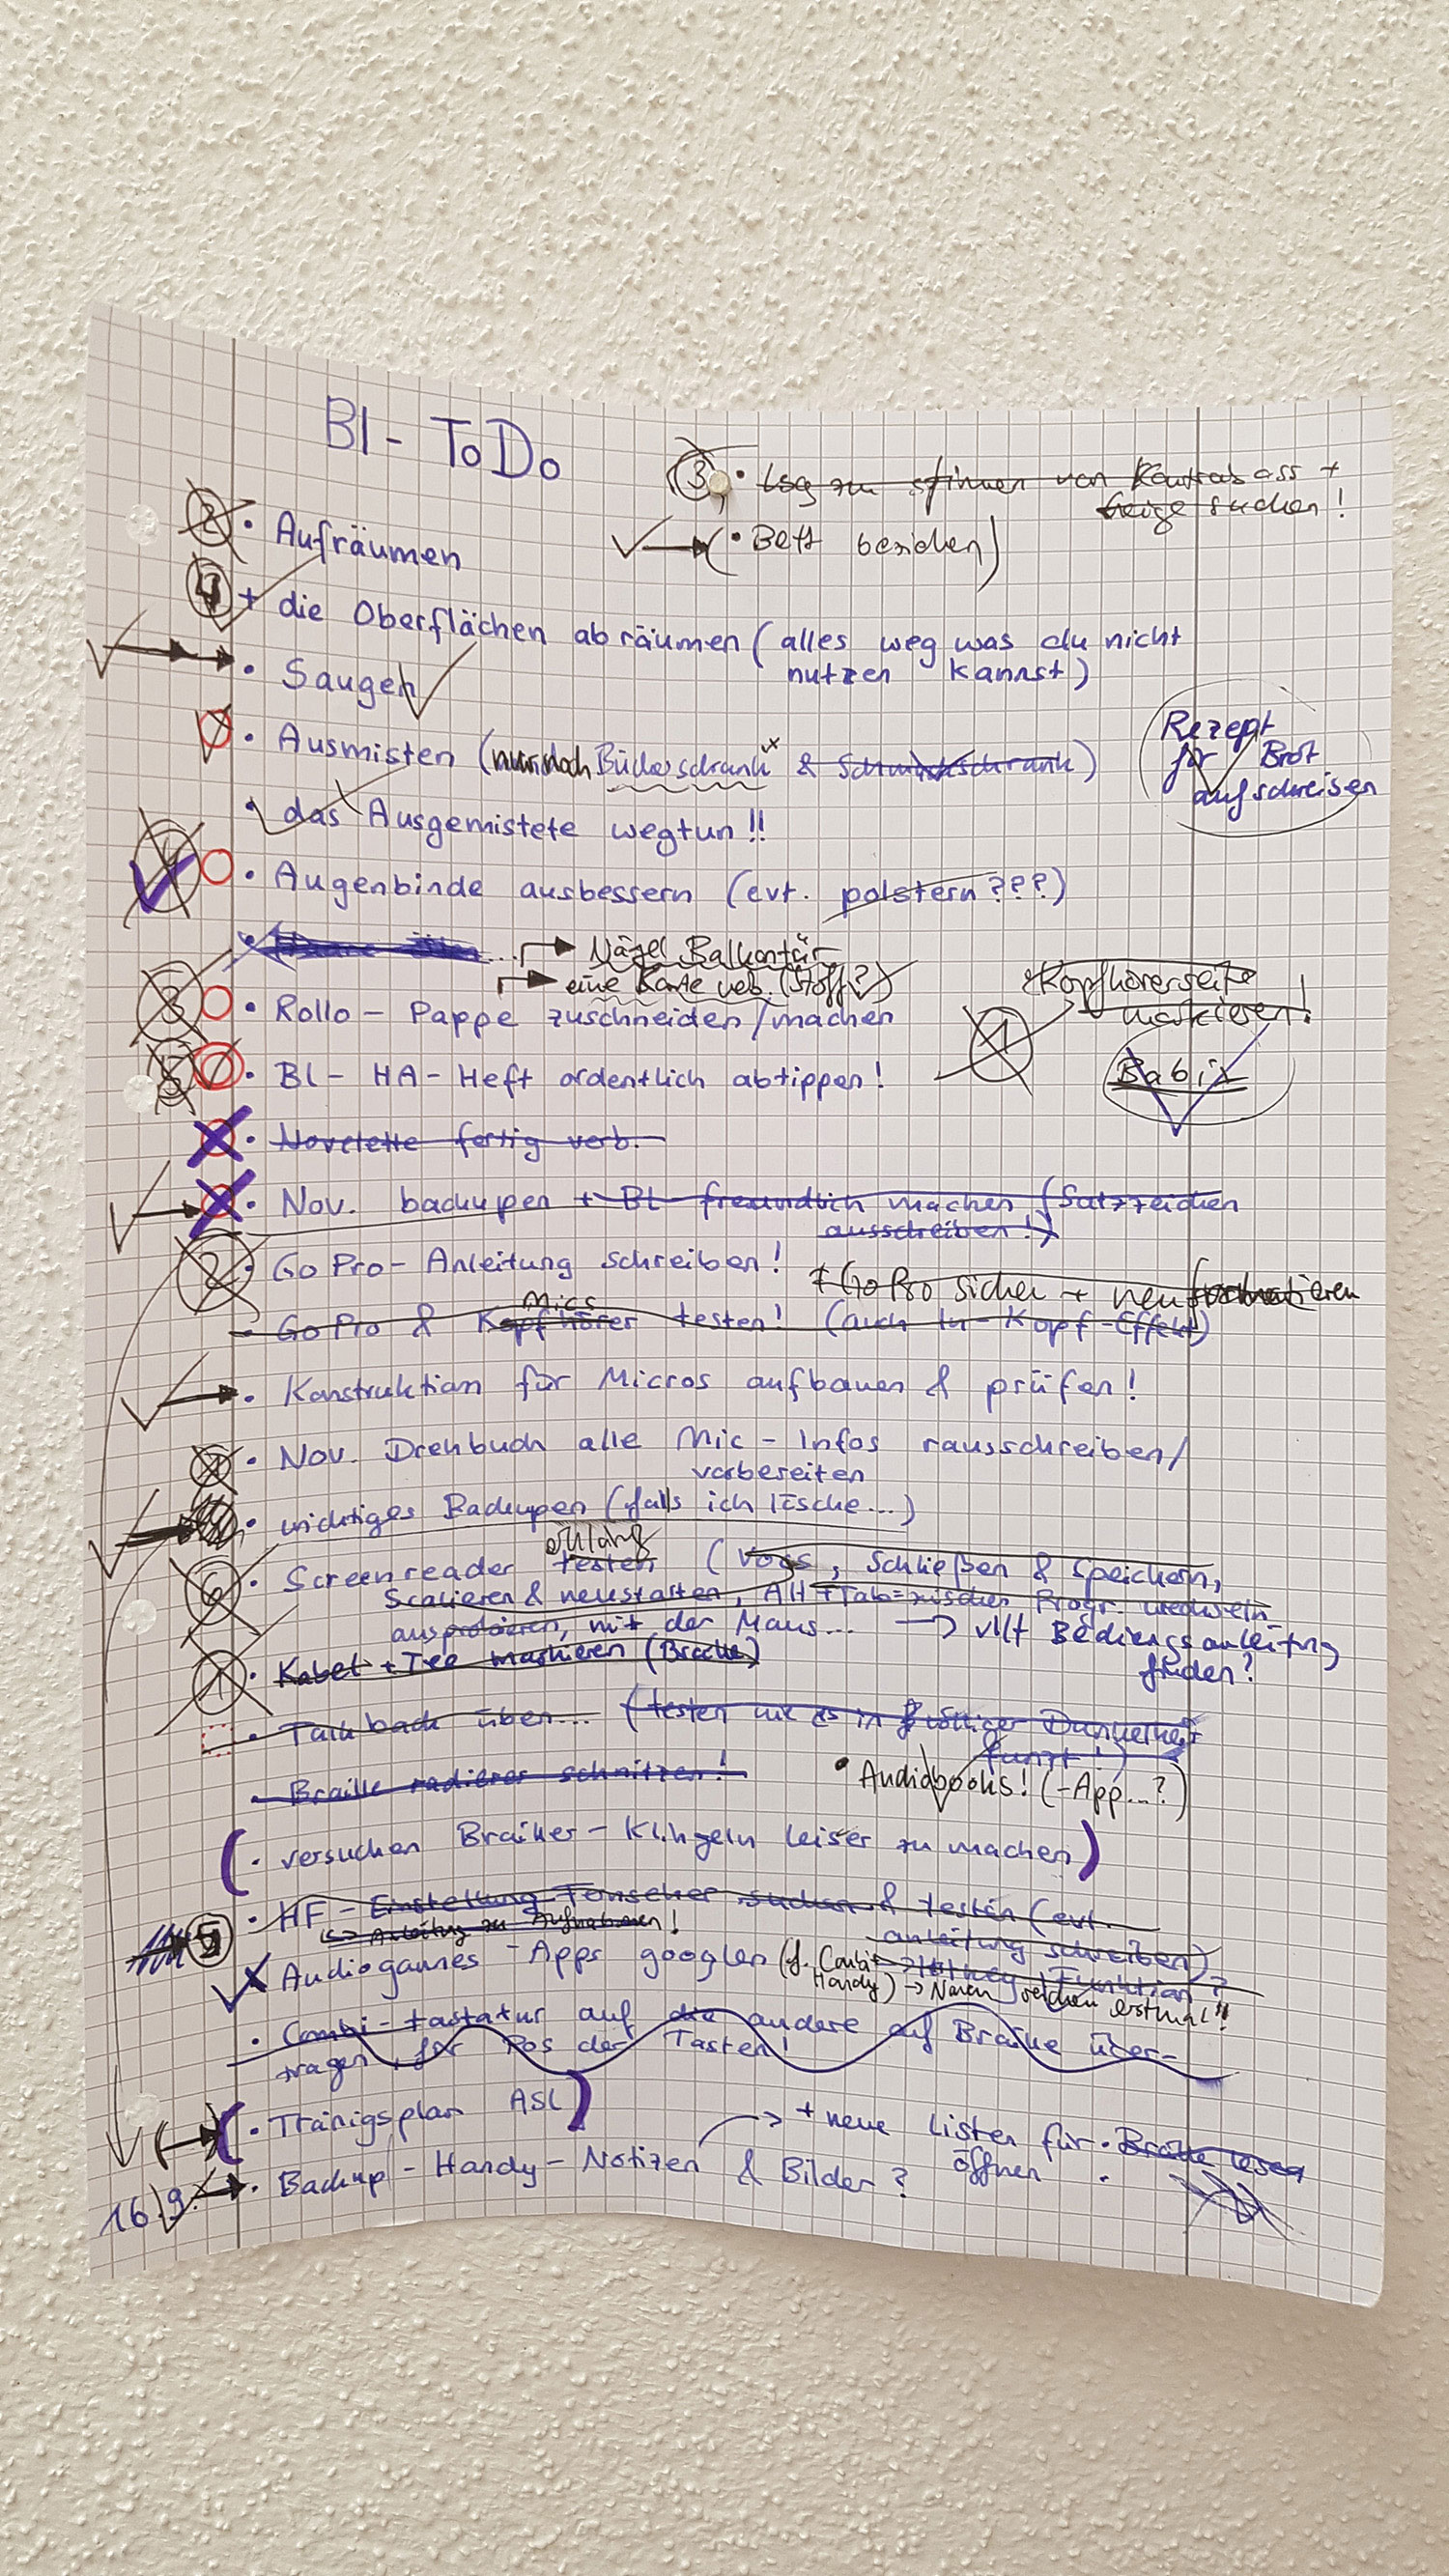 Bl - ToDo
3, • Log zu stimmen von Kontrabass +
Geige suchen!
(• Bett beziehen)
2 • Aufräumen
4 + die Oberflächen abräumen (alles weg was du nicht
nutzen kannst)
• Saugen
• Ausmisten (nur noch Bücherschrank & Schmuckschrank)
Rezept
für Brot
aufschreiben
• das Ausgemistete wegtun!!
• Augenbinde ausbessern (evt. polstern???)
Nägel Balkontür
eine Karte web. (Stoff?)
3 • Rollo - Pappe zuschneiden/machen
Kopfhörerseite
markieren!
1
5 • Bl - HA - Heft ordentlich abtippen!
Babix
• Novelette fertig verb.
• Nov. backupen + Bl - freundlich machen (Satzzeichen
ausschreiben!)
2 • GoPro - Anleitung schreiben!
+ GoPro sicher + neu formatieren
Mics
- GoPro & Kopfhörer testen! (auch In-Kopf-Effekt)
• Konstruktion für Micros aufbauen & prüfen!
• Nov. Drehbuch alle Mic - Infos rausschreiben/
vorbereiten
• wichtiges Backupen (falls ich lösche...)
6 • Screenreader testen (Vogs, Schließen & Speichern,
Scalieren & neustarten, Alt+Tab=zwischen Progr. wechseln
ausprobieren, mit der Maus... → vllt Bediengsanleitung
finden?
1 • Kabel + Tee markieren (Braille)
• Talkback üben... (testen wie es in völliger Dunkelheit
funzt!)
• Braille radierer schnitzen!
• Audiobooks! (-App...?)
(• versuchen Brailler - Klingeln leiser zu machen)
5 • HF - Einstellung Fernseher suchen & testen (evt.
anleitung schreiben)
↳ Anleitung zu Aufnahmen!
• Audiogames - Apps googlen (f. Combi
→ Hotkey Funktion?
Handy) → Namen reichen erstmal!!
• Combi - tastatur auf die andere auf Braille über-
tragen, für Pos der Tasten!
(• Trainigsplan ASL)
→ + neue Listen für • Braille lesen
öffnen •
16.9. → • Backup - Handy - Notizen & Bilder?